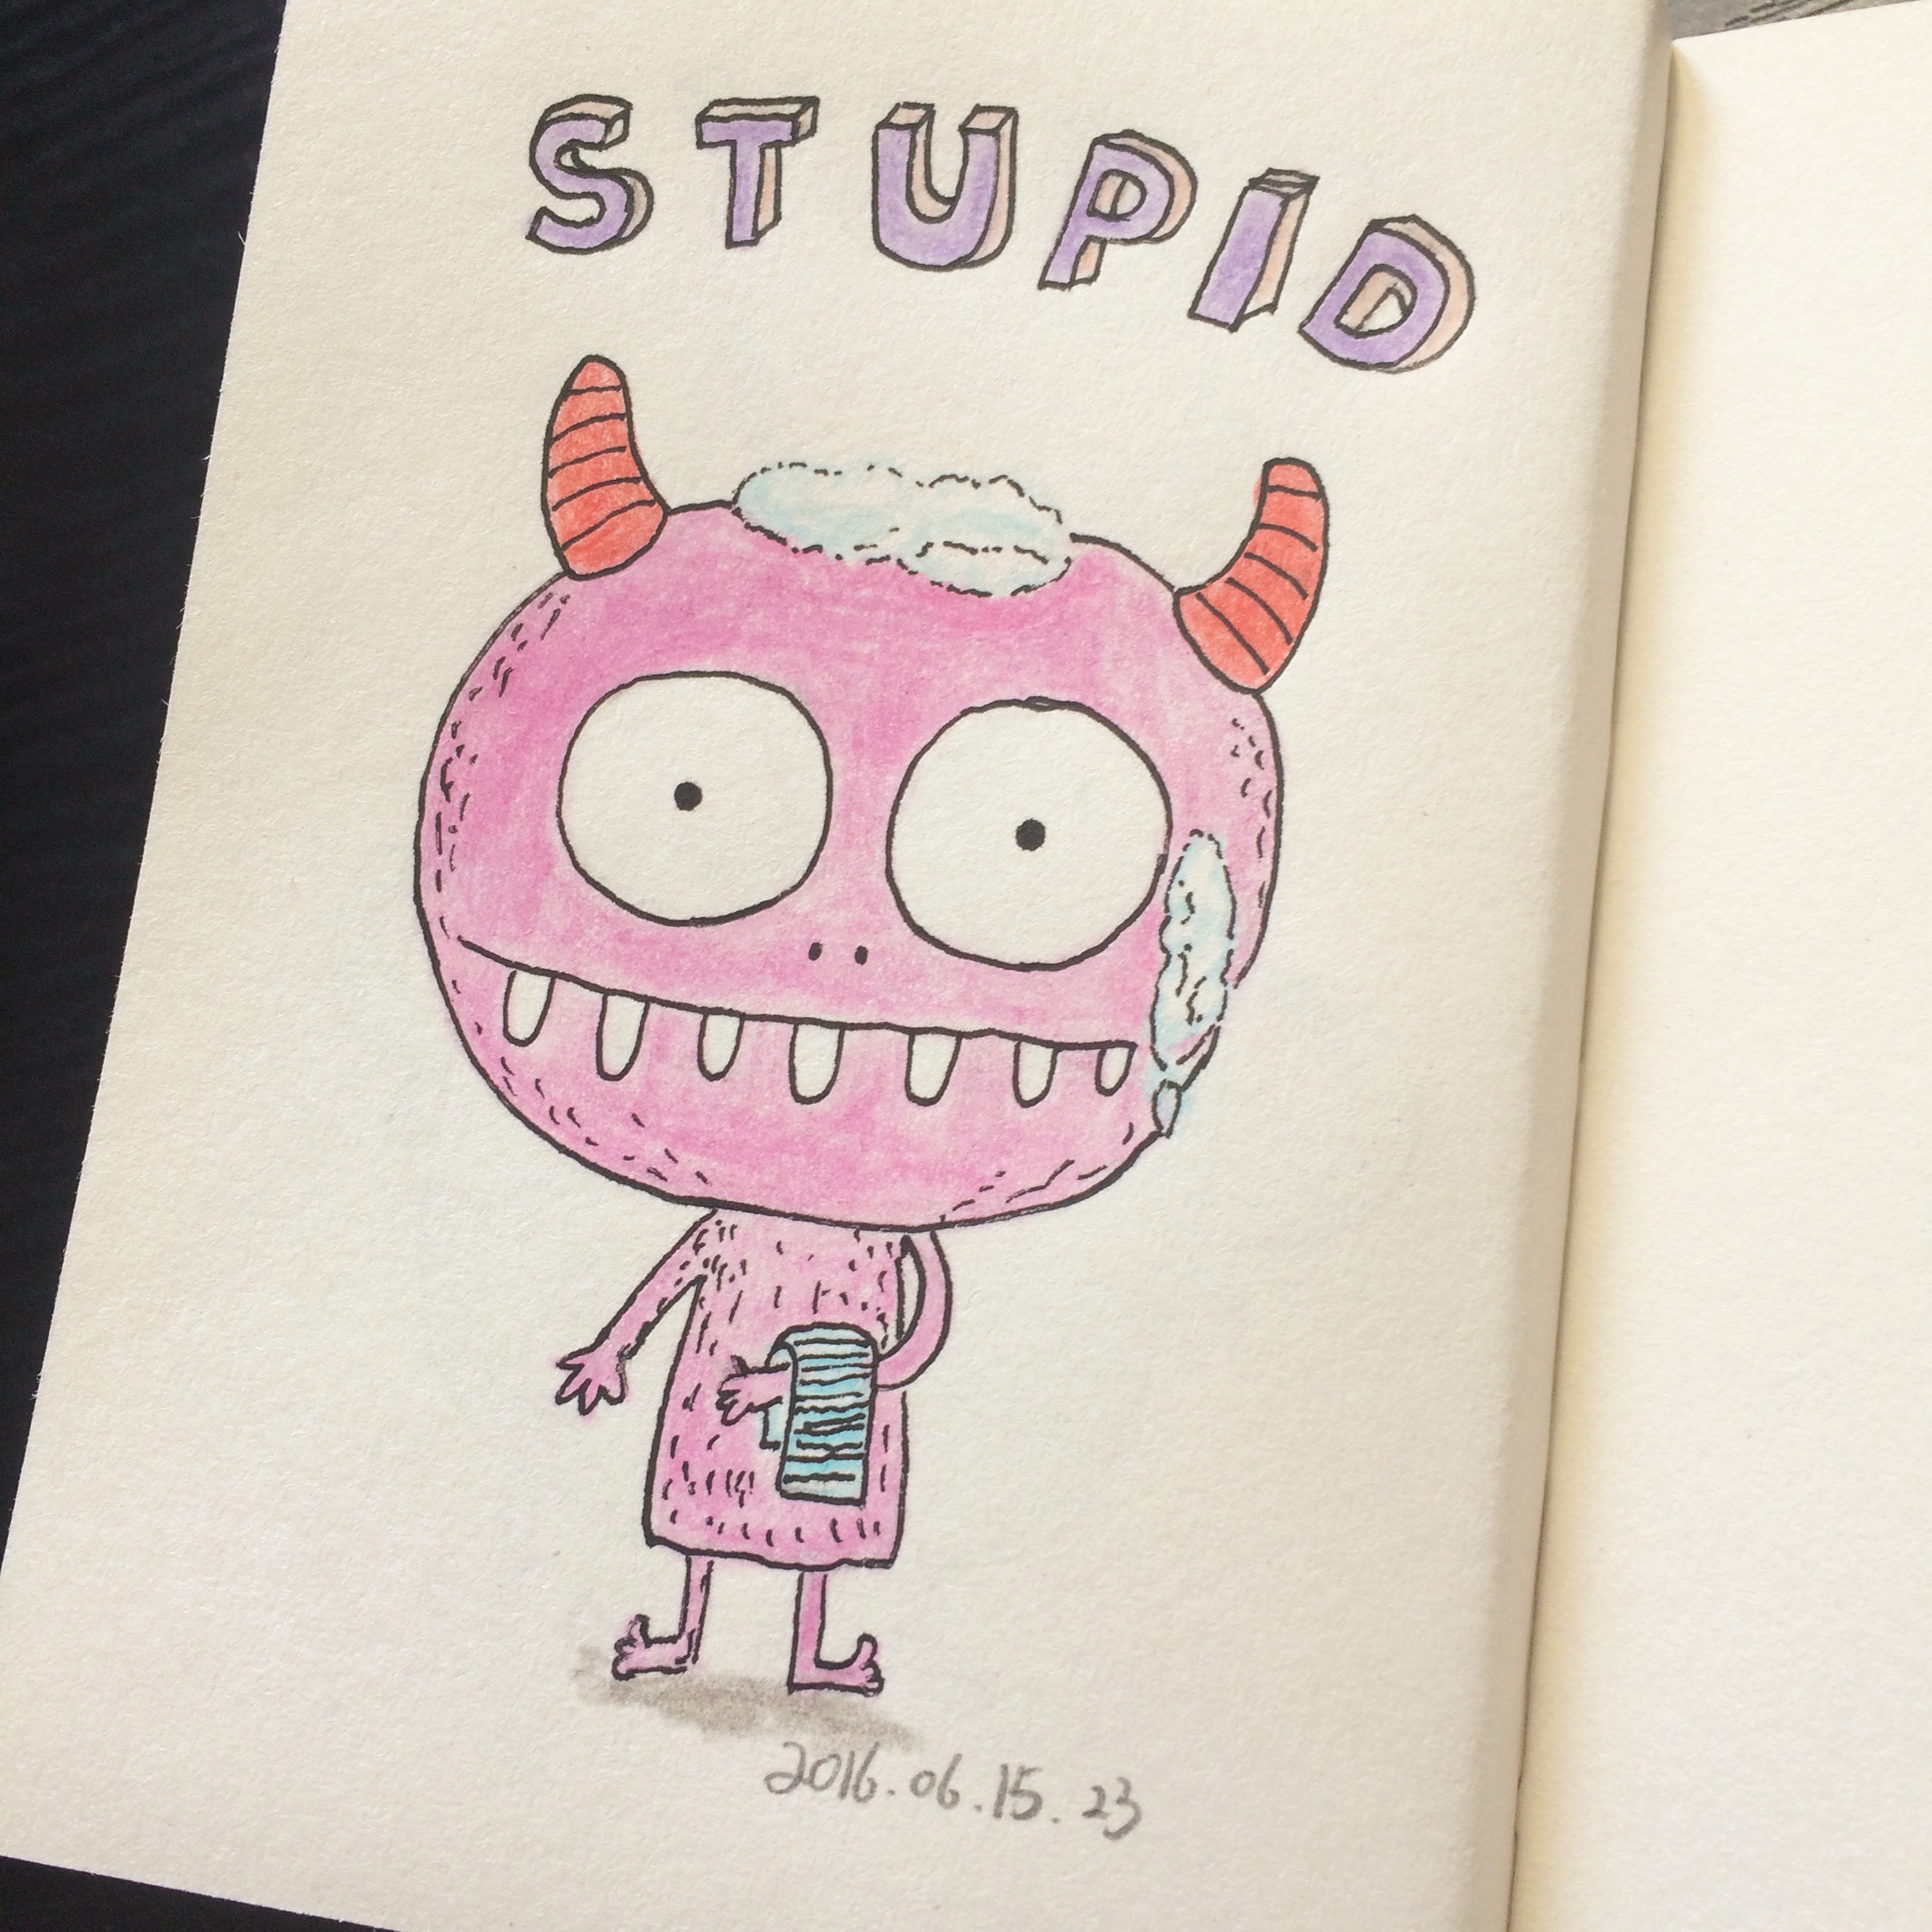 STUPID
2016.06.15.23